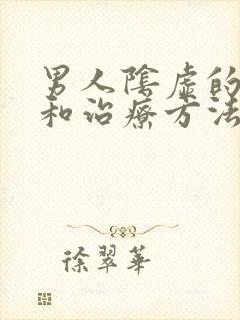 男人陰虛的
和治療方法
徐翠華